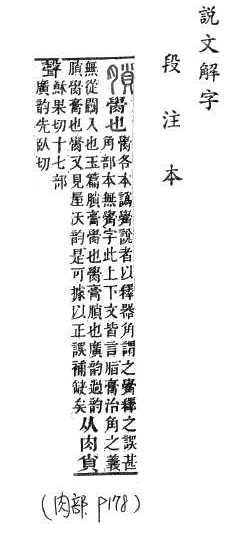 說文解字
段注本
也 各本譌觷說者以釋器角謂之觷釋之誤甚
角部本無觷字此上下文皆言脂膏治角之義
無從闌入也玉篇膏也膏也廣韵過韵
膏也又見屋沃韵是可據以正誤補缺矣 从肉
聲 穌果切十七部
廣韵先臥切
(肉部 P178)